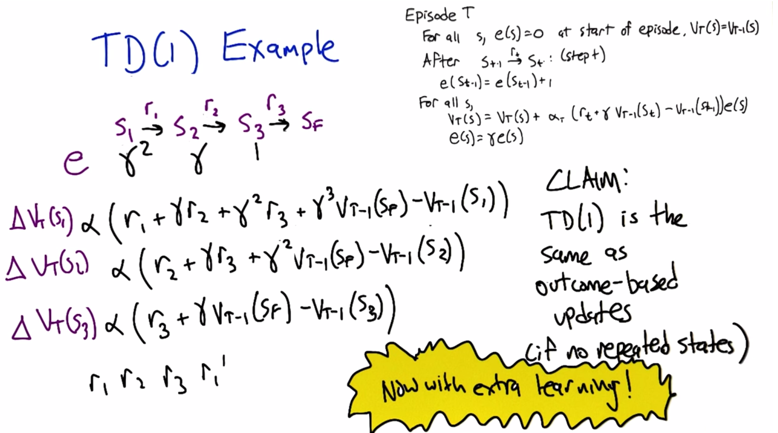 TD(1) Example
Episode T
For all s, e(s)=0 at start of episode, V_T(s)=V_{T-1}(s)
After S_{t-1} →^{r_t} S_t: (step t)
e(S_{t-1})=e(S_{t-1})+1
For all s,
V_T(s)=V_T(s)+α_T(r_t+γV_{T-1}(S_t)-V_{T-1}(S_{t-1}))e(s)
e(s)=γe(s)
S_1 →^{r_1} S_2 →^{r_2} S_3 →^{r_3} S_F
e γ² γ 1
ΔV_T(S_1) α (r_1+γr_2+γ²r_3+γ³V_{T-1}(S_F)-V_{T-1}(S_1))
ΔV_T(S_2) α (r_2+γr_3+γ²V_{T-1}(S_F)-V_{T-1}(S_2))
ΔV_T(S_3) α (r_3+γV_{T-1}(S_F)-V_{T-1}(S_3))
r_1 r_2 r_3 r_1'
CLAIM:
TD(1) is the
same as
outcome-based
updates
(if no repeated states)
Now with extra learning!